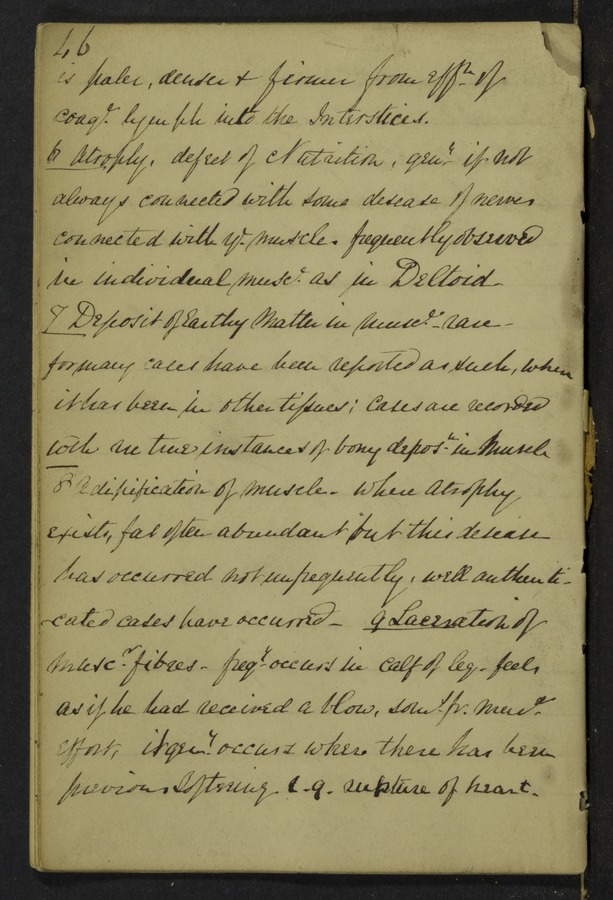 46
is paler, denser & firmer from effn. of
coagd. lymph into the Interstices.
6 Atrophy, defect of Nutrition, genl. if not
always connected with some desease of nerves
connected with ye. muscle. frequently observed
in individual musc. as in Deltoid.
7 Deposit of Earthy Matter in musc. rare -
for many cases have been reported as such, when
it has been in other tissues; cases are recorded
in true instances of bony depost. in Muscle
8 Adipification of muscle. where atrophy
exists, fat often abundant but this desease
has occurred not unfrequently, well authenti-
cated cases have occurred - 9 Laceration of
muscr. fibres - freqy. occurs in calf of leg - feels
as if he had received a blow, somt. fr.
effort, it genl. occurs where there has been
previous Softening. e.g. rupture of heart.